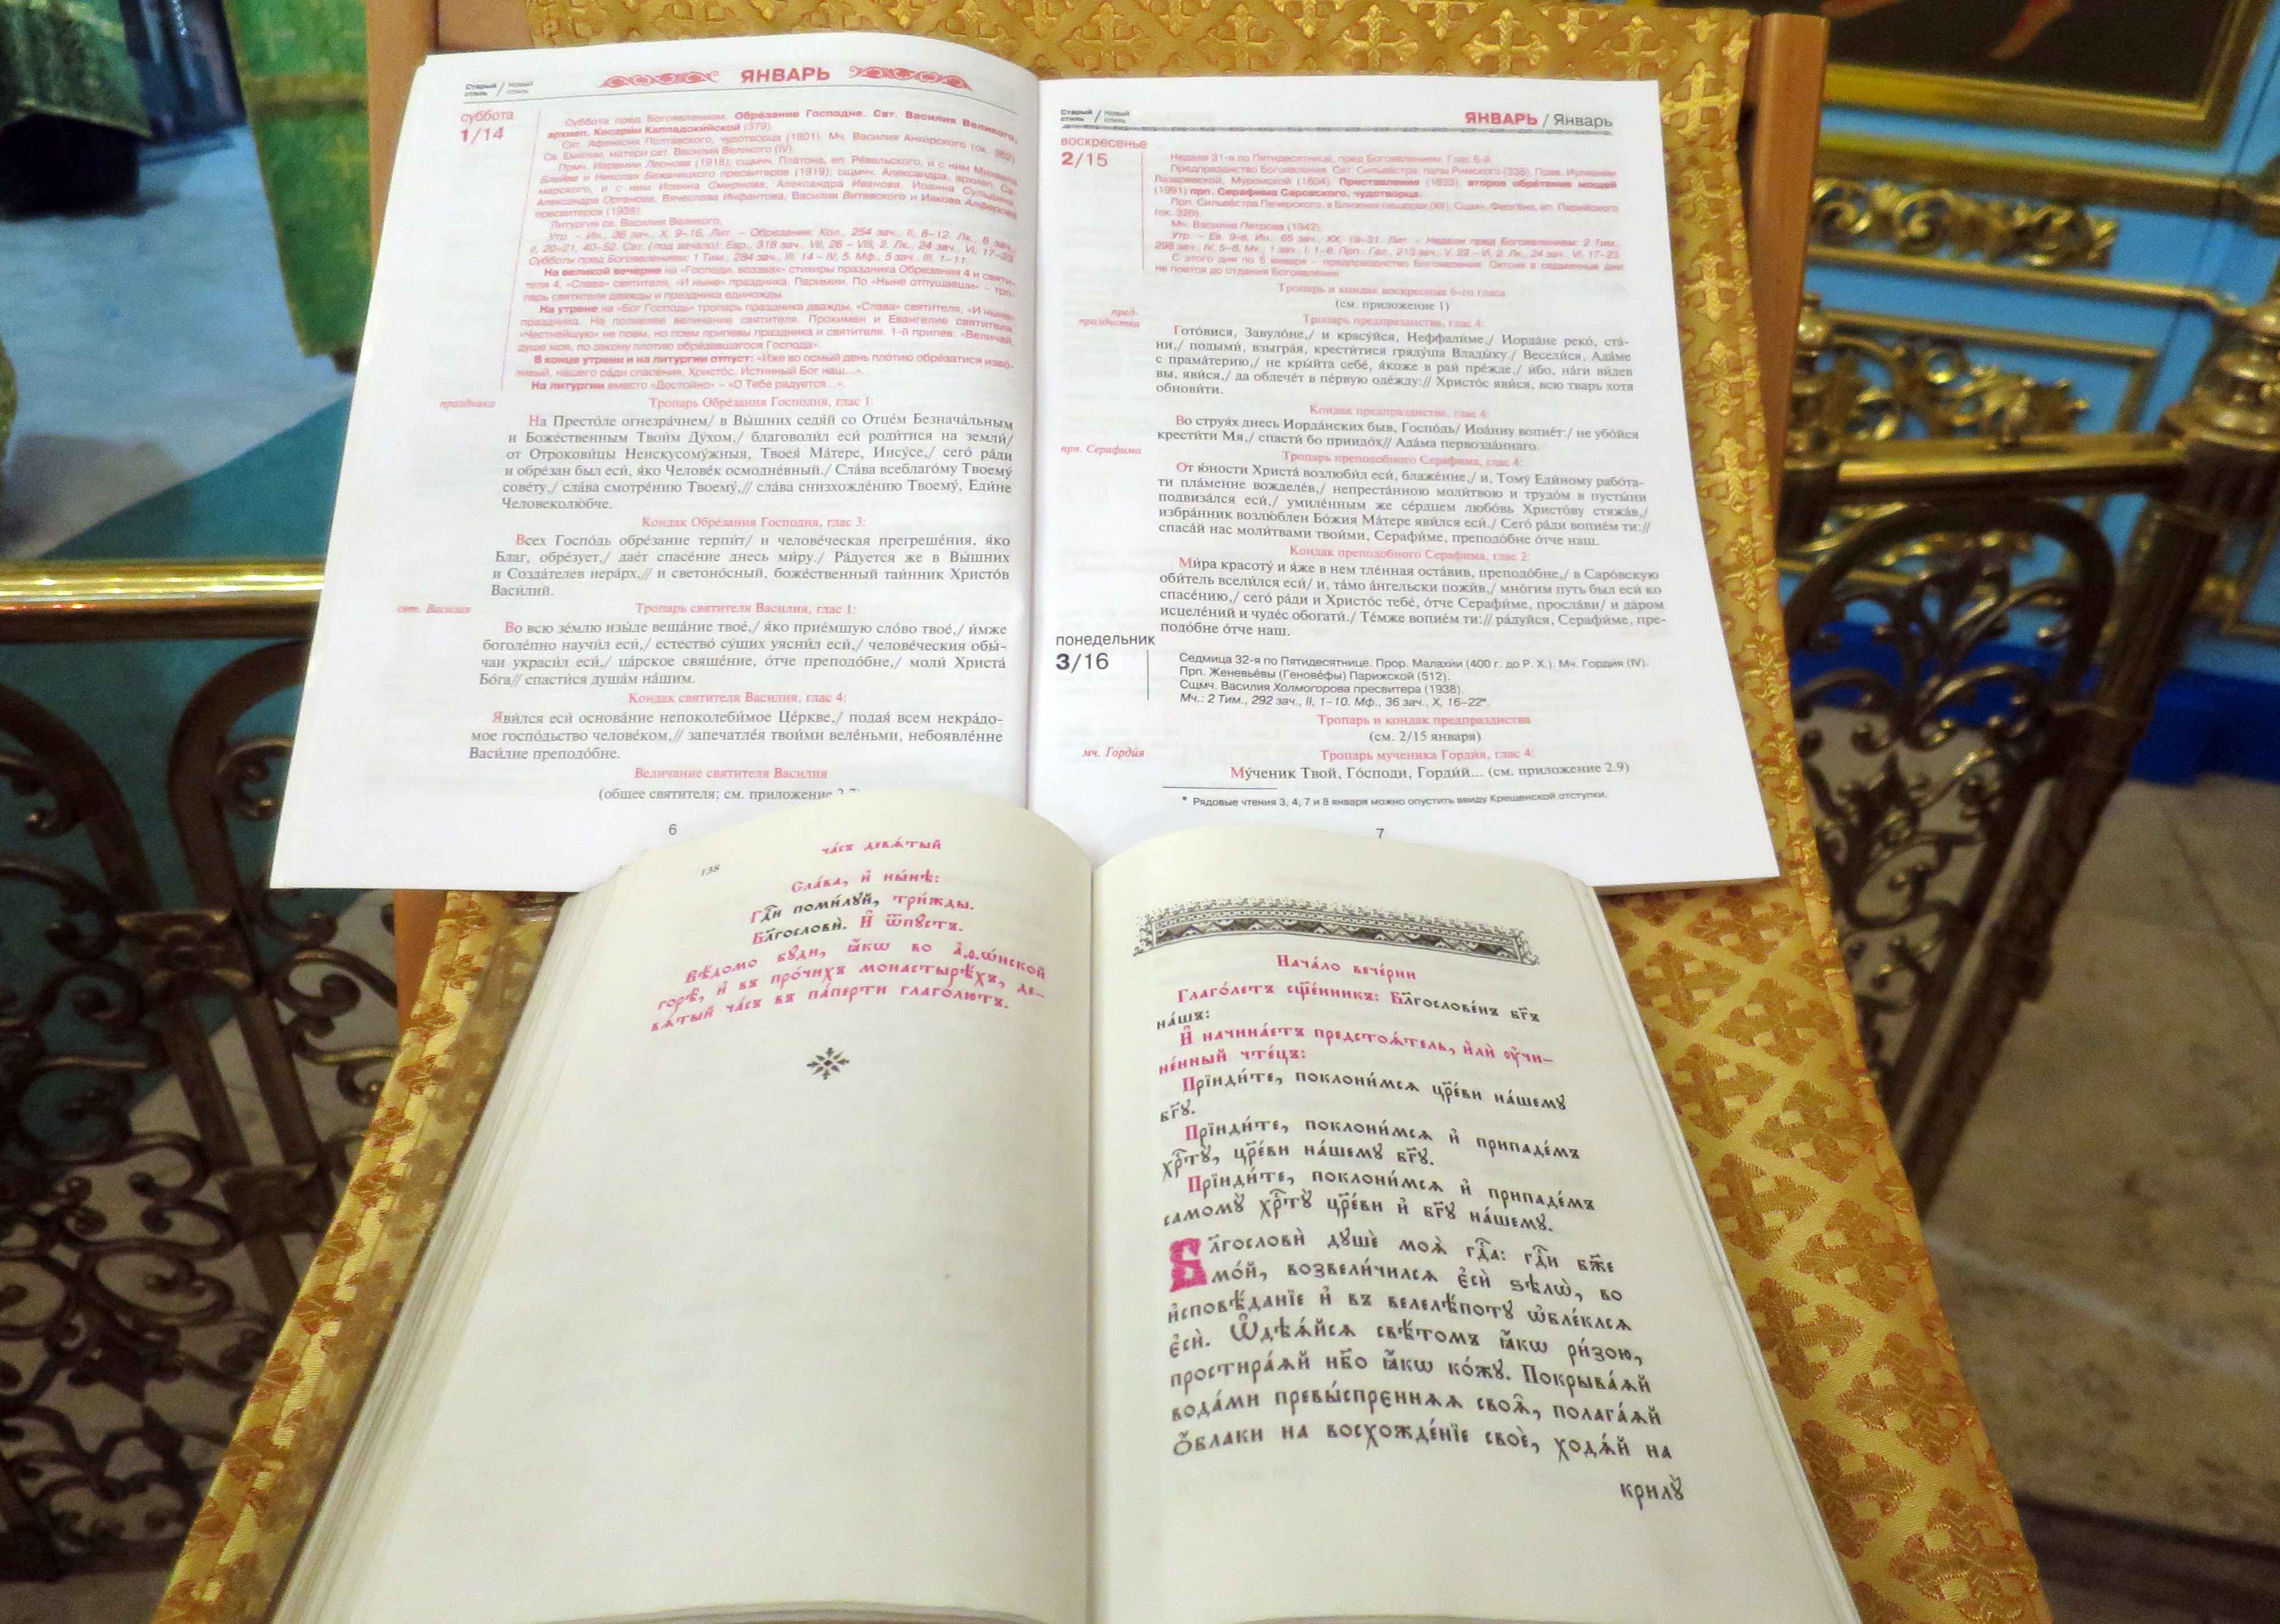 Старый стиль / Новый стиль
ЯНВАРЬ
суббота
1/14
Суббота пред Богоявлением. Обре́зание Господне. Свт. Василия Великого,
архиеп. Кесари́и Каппадоки́йской (379).
Свт. Афанасия Полтавского, чудотворца (1801). Мч. Василия Анки́рского (ок. 362).
Св. Еми́лии, матери свт. Василия Великого (IV).
Прмч. Иеремии Леонова (1918); сщмчч. Платона, еп. Ре́вельского, и с ним Михаила
Блейве и Николая Бежаницкого пресвитеров (1919); сщмчч. Александра, архиеп. Са-
марского, и с ним Иоанна Смирнова, Александра Иванова, Иоанна Сульдина,
Александра Органова, Вячеслава Инфантова, Василия Витевского и Иакова Алферова
пресвитеров (1938).
Литургия св. Василия Великого.
Утр. – Ин., 36 зач., X, 9–16. Лит. – Обрезания: Кол., 254 зач., II, 8–12. Лк., 6 зач.,
II, 20–21, 40–52. Свт. (под зачало): Евр., 318 зач., VII, 26 – VIII, 2. Лк., 24 зач., VI, 17–23.
Субботы пред Богоявлением: 1 Тим., 284 зач., III, 14 – IV, 5. Мф., 5 зач., III, 1–11.
На великой вечерне на «Господи, воззвах» стихиры праздника Обрезания 4 и святи-
теля 4, «Слава» святителя, «И ныне» праздника. Паримии. По «Ныне отпущаеши» – тро-
парь святителя дважды и праздника единожды.
На утрене на «Бог Господь» тропарь праздника дважды, «Слава» святителя, «И ныне»
праздника. На полиелее величание святителя. Прокимен и Евангелие святителя.
«Честнейшую» не поем, но поем припевы праздника и святителя. 1-й припев: «Величай,
душе моя, по закону плотию обре́завшагося Господа».
В конце утрени и на литургии отпуст: «Иже во осмый день пло́тию обре́затися изво́-
ливый, нашего ра́ди спасе́ния, Христо́с, Истинный Бог наш...».
На литургии вместо «Достойно» – «О Тебе радуется...».
праздника
Тропарь Обре́зания Господня, глас 1:
На Престо́ле огнезра́чнем/ в Вы́шних седя́й со Отце́м Безнача́льным
и Боже́ственным Твои́м Ду́хом,/ благоволи́л еси́ роди́тися на земли́/
от Отрокови́цы Неискусому́жныя, Твоея́ Ма́тере, Иису́се,/ сего́ ра́ди
и обре́зан был еси́, я́ко Челове́к осмодне́вный./ Сла́ва всеблаго́му Твоему́
сове́ту,/ сла́ва смотре́нию Твоему́,// сла́ва снизхожде́нию Твоему́, Еди́не
Человеколю́бче.
Кондак Обре́зания Господня, глас 3:
Всех Госпо́дь обре́зание терпи́т/ и челове́ческая прегреше́ния, я́ко
Благ, обре́зует,/ дае́т спасе́ние днесь ми́ру./ Ра́дуется же в Вы́шних
и Созда́телев иера́рх,// и светоно́сный, боже́ственный таи́нник Христо́в
Васи́лий.
свт. Василия
Тропарь святителя Василия, глас 1:
Во всю зе́млю изы́де веща́ние твое́,/ я́ко прие́мшую сло́во твое́,/ и́мже
боголе́пно научи́л еси́,/ естество́ су́щих уясни́л еси́,/ челове́ческия обы́-
чаи украси́л еси́,/ ца́рское свяще́ние, о́тче преподо́бне,/ моли́ Христа́
Бо́га// спасти́ся душа́м на́шим.
Кондак святителя Василия, глас 4:
Яви́лся еси́ основа́ние непоколеби́мое Це́ркве,/ подая́ всем некра́до-
мое госпо́дьство челове́ком,// запечатле́я твои́ми веле́ньми, небоявле́нне
Васи́лие преподо́бне.
Величание святителя Василия
(общее святителя; см. приложение
6
Старый стиль / Новый стиль
ЯНВАРЬ / Январь
воскресенье
2/15
Неделя 31-я по Пятидесятнице, пред Богоявлением. Глас 6-й.
Предпразднство Богоявления. Свт. Сильве́стра, папы Римского (335). Прав. Иулиании
Лазаревской, Муромской (1604). Преставление (1833), второе обре́тение мощей
(1991) прп. Серафима Саровского, чудотворца.
Прп. Сильве́стра Печерского, в Ближних пещерах (XII). Сщмч. Феоге́на, еп. Парийского
(ок. 320).
Мч. Василия Петрова (1942).
Утр. – Ев. 9-е, Ин., 65 зач., XX, 19–31. Лит. – Недели пред Богоявлением: 2 Тим.,
298 зач., IV, 5–8. Мк., 1 зач., I, 1–8. Прп.: Гал., 213 зач., V, 22 – VI, 2. Лк., 24 зач., VI, 17–23.
С этого дня по 5 января – предпразднство Богоявления. Октоих в седмичные дни
не поется до отдания Богоявления.
Тропарь и кондак воскресные 6-го гласа
(см. приложение 1)
пред-
празднства
Тропарь предпразднства, глас 4:
Гото́вися, Завуло́не,/ и красу́йся, Неффали́ме./ Иорда́не реко́, ста́-
ни,/ подыми́, взыгра́я, крести́тися гряду́ща Влады́ку./ Весели́ся, Ада́ме
с прама́терию,/ не кры́йта себе́, я́коже в рай пре́жде,/ и́бо, на́ги ви́дев
вы, яви́ся,/ да облече́т в пе́рвую оде́жду:// Христо́с яви́ся, всю тварь хотя́
обнови́ти.
Кондак предпразднства, глас 4:
Во струя́х днесь Иорда́нских быв, Госпо́дь/ Иоа́нну вопие́т:/ не убо́йся
крести́ти Мя,/ спасти́ бо приидо́х// Ада́ма первозда́ннаго.
прп. Серафима
Тропарь преподобного Серафима, глас 4:
От ю́ности Христа́ возлюби́л еси́, блаже́нне,/ и, Тому́ Еди́ному рабо́та-
ти пла́менне вожделе́в,/ непреста́нною моли́твою и трудо́м в пусты́ни
подвиза́лся еси́,/ умиле́нным же се́рдцем любо́вь Христо́ву стяжа́в,/
избра́нник возлю́блен Бо́жия Ма́тере яви́лся еси́./ Сего́ ра́ди вопие́м ти://
спаса́й нас моли́твами твои́ми, Серафи́ме, преподо́бне о́тче наш.
Кондак преподобного Серафима, глас 2:
Ми́ра красоту́ и я́же в нем тле́нная оста́вив, преподо́бне,/ в Саро́вскую
оби́тель всели́лся еси́/ и, та́мо а́нгельски пожи́в,/ мно́гим путь был еси́ ко
спасе́нию,/ сего́ ра́ди и Христо́с тебе́, о́тче Серафи́ме, просла́ви/ и да́ром
исцеле́ний и чуде́с обогати́./ Те́мже вопие́м ти:// ра́дуйся, Серафи́ме, пре-
подо́бне о́тче наш.
понедельник
3/16
Седмица 32-я по Пятидесятнице. Прор. Малахи́и (400 г. до Р. Х.). Мч. Горди́я (IV).
Прп. Женевье́вы (Геновефы) Парижской (512).
Сщмч. Василия Холмогорова пресвитера (1938).
Мч.: 2 Тим., 292 зач., II, 1–10. Мф., 36 зач., X, 16–22*.
Тропарь и кондак предпразднства
(см. 2/15 января)
мч. Горди́я
Тропарь мученика Горди́я, глас 4:
Му́ченик Твой, Го́споди, Горди́й... (см. приложение 2.9)
* Рядовые чтения 3, 4, 7 и 8 января можно опустить ввиду Крещенской отступки.
7
138
ча́съ девѧ́тый
Сла́ва, и҆ ны́нѣ:
Гдⷭ҇и поми́лꙋй, три́жды.
Бл҃гословѝ. И҆ ѿпꙋстъ.
Вѣ́домо бꙋди, ꙗ҆́кѡ во а҆ѳѡ́нской
горѣ̀, и҆ въ про́чихъ монастырѣ́хъ, де-
вѧ́тый ча́съ въ па́перти глаго́лютъ.
Нача́ло вече́рни
Глаго́летъ сщ҃е́нникъ: Бл҃гослове́нъ бг҃ъ
на́шъ:
И҆ начина́етъ предстоѧ́тель, и҆лѝ ᲂу҆чи-
не́нный чте́цъ:
Прїиди́те, поклони́мсѧ цр҃е́ви на́шемꙋ
бг҃ꙋ.
Прїиди́те, поклони́мсѧ и҆ припаде́мъ
хрⷭ҇тꙋ̀, цр҃е́ви на́шемꙋ бг҃ꙋ.
Прїиди́те, поклони́мсѧ и҆ припаде́мъ
самомꙋ̀ хрⷭ҇тꙋ̀ цр҃е́ви и҆ бг҃ꙋ на́шемꙋ.
Бл҃гословѝ дꙋшѐ моѧ̀ гдⷭ҇а: гдⷭ҇и бж҃е
мо́й, возвели́чилсѧ є҆сѝ ѕѣлѡ̀, во
и҆сповѣ́данїе и҆ въ велелѣ́потꙋ ѡ҆бле́клсѧ
є҆сѝ. Ѡ҆дѣѧ́йсѧ свѣ́томъ ꙗ҆́кѡ ри́зою,
простира́ѧй нб҃о ꙗ҆́кѡ ко́жꙋ. Покрыва́ѧй
вода́ми превы́спреннѧѧ своѧ҄, полага́ѧй
ѻ҆́блаки на восхожде́нїе своѐ, ходѧ́й на
крилꙋ̀